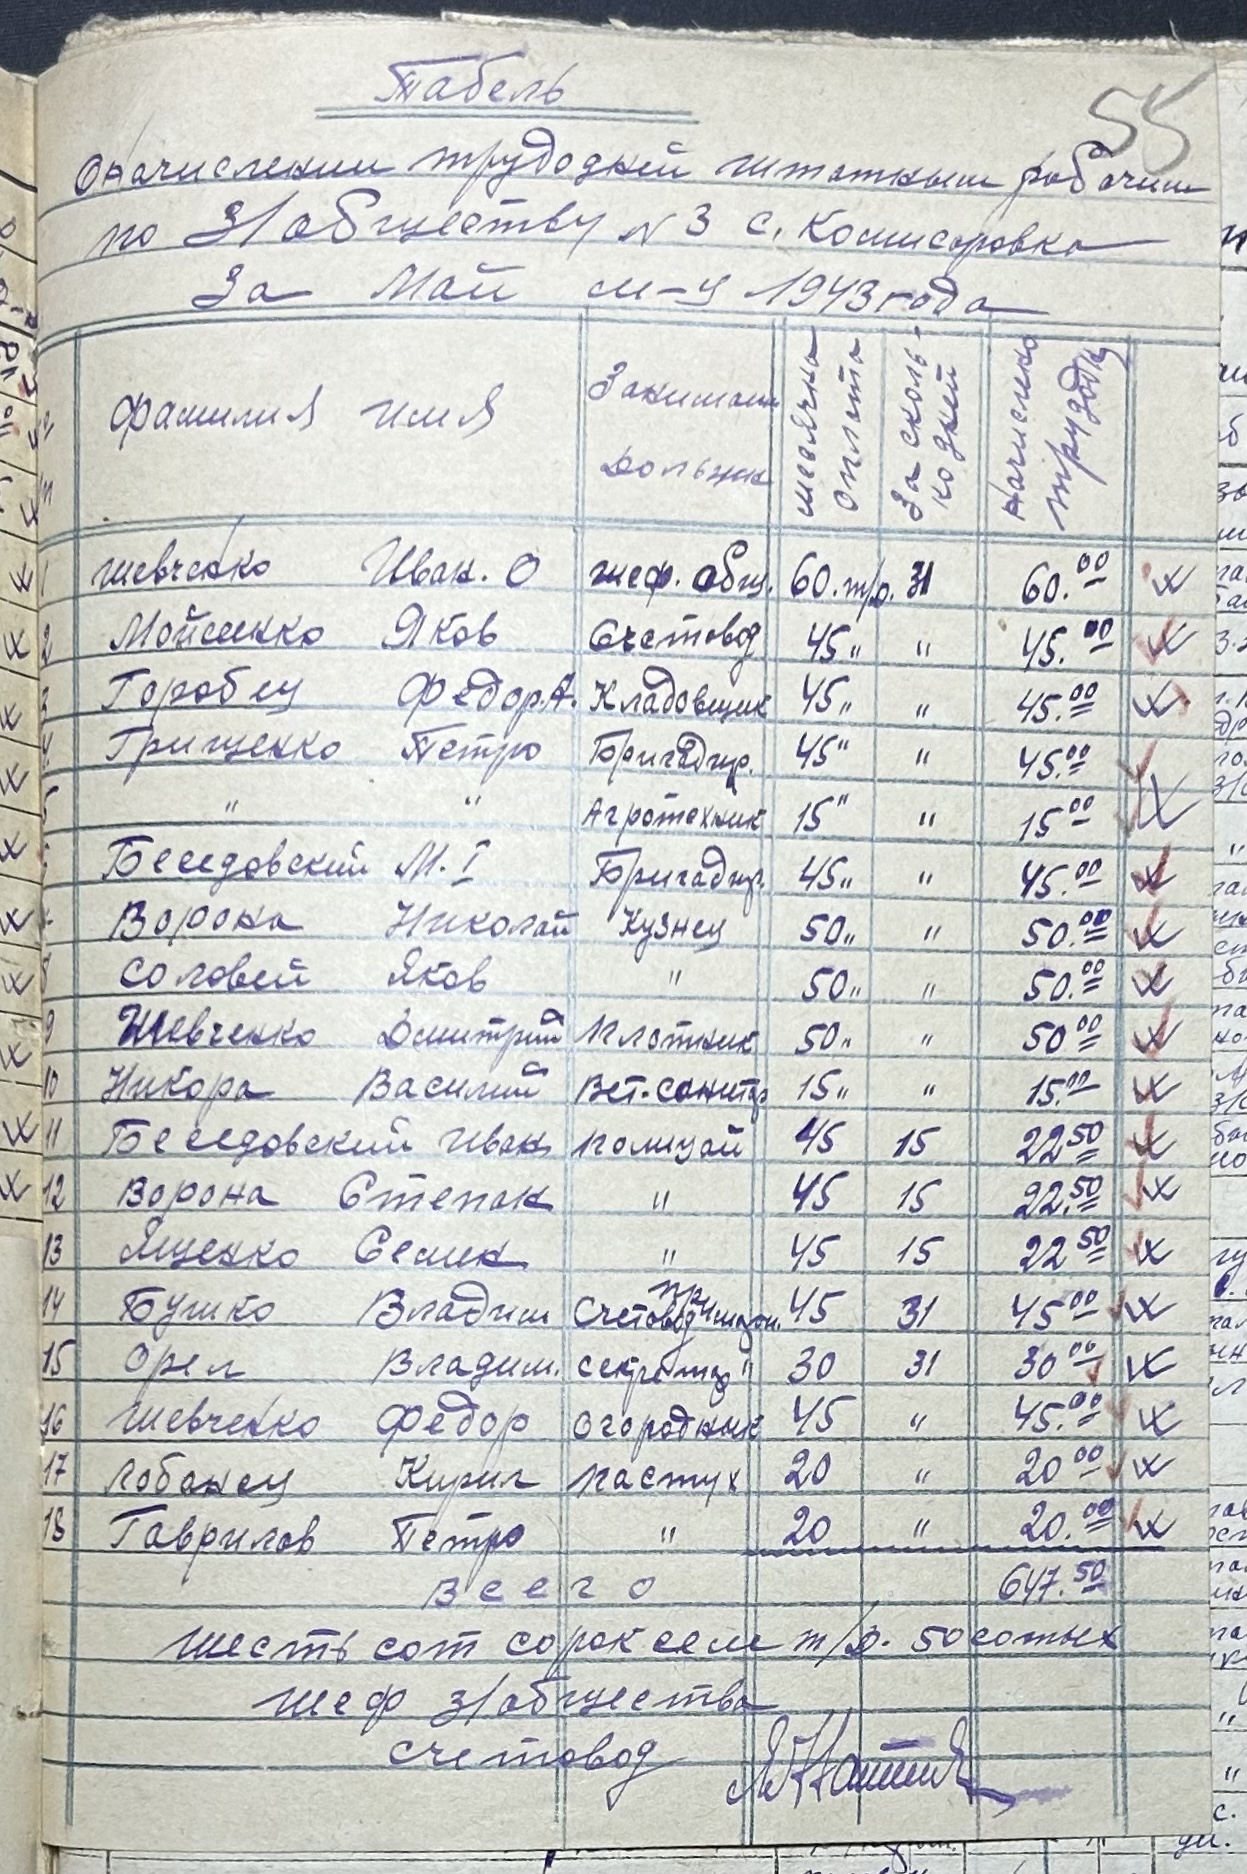 Табель
55
О начислении трудодней штатным рабочим
по З/обществу N 3 с. Комисаровка
За Май м-ц 1943 года
Фамилиия имя Занимаем Должн месячна оплата За сколь-ко дней Начислено трудодн
1 Шевченко Иван. О шеф. общ. 60. т/д. 31 60.00
2 Мойсенко Яков Счетовод 45 " " 45.00
3 Горобец Федор. А. Кладовщик 45 " " 45.00
4 Грищенко Петро Бригадир. 45 " " 45.00
5 " " Агротехник 15 " " 15 00
6 Беседовский М. І Бригадир. 45 " " 45.00
7 Ворона Николай Кузнец 50 " " 50.00
8 Соловей Яков " 50 " " 50.00
9 Шевченко Дмитрий Плотник 50 " " 50 00
10 Никора Василий Вет. санитар 15 " " 15.00
11 Беседовский Иван полицай 45 15 22 50
12 Ворона Степан " 45 15 22.50
13 Яценко Семен " 45 15 22 50
14 Бушко Владим Счетовод 45 31 45 00
15 Орел Владим. секретар " 30 31 30 00
16 Шевченко Федор Огородник 45 " 45.00
17 Лобанец Кирил Пастух 20 " 20 00
18 Гаврилов Петро " 20 " 20.00
Всего 647.50
Шесть сот сорок семь т/д. 50 сотых
Шеф з/общества
Счетовод